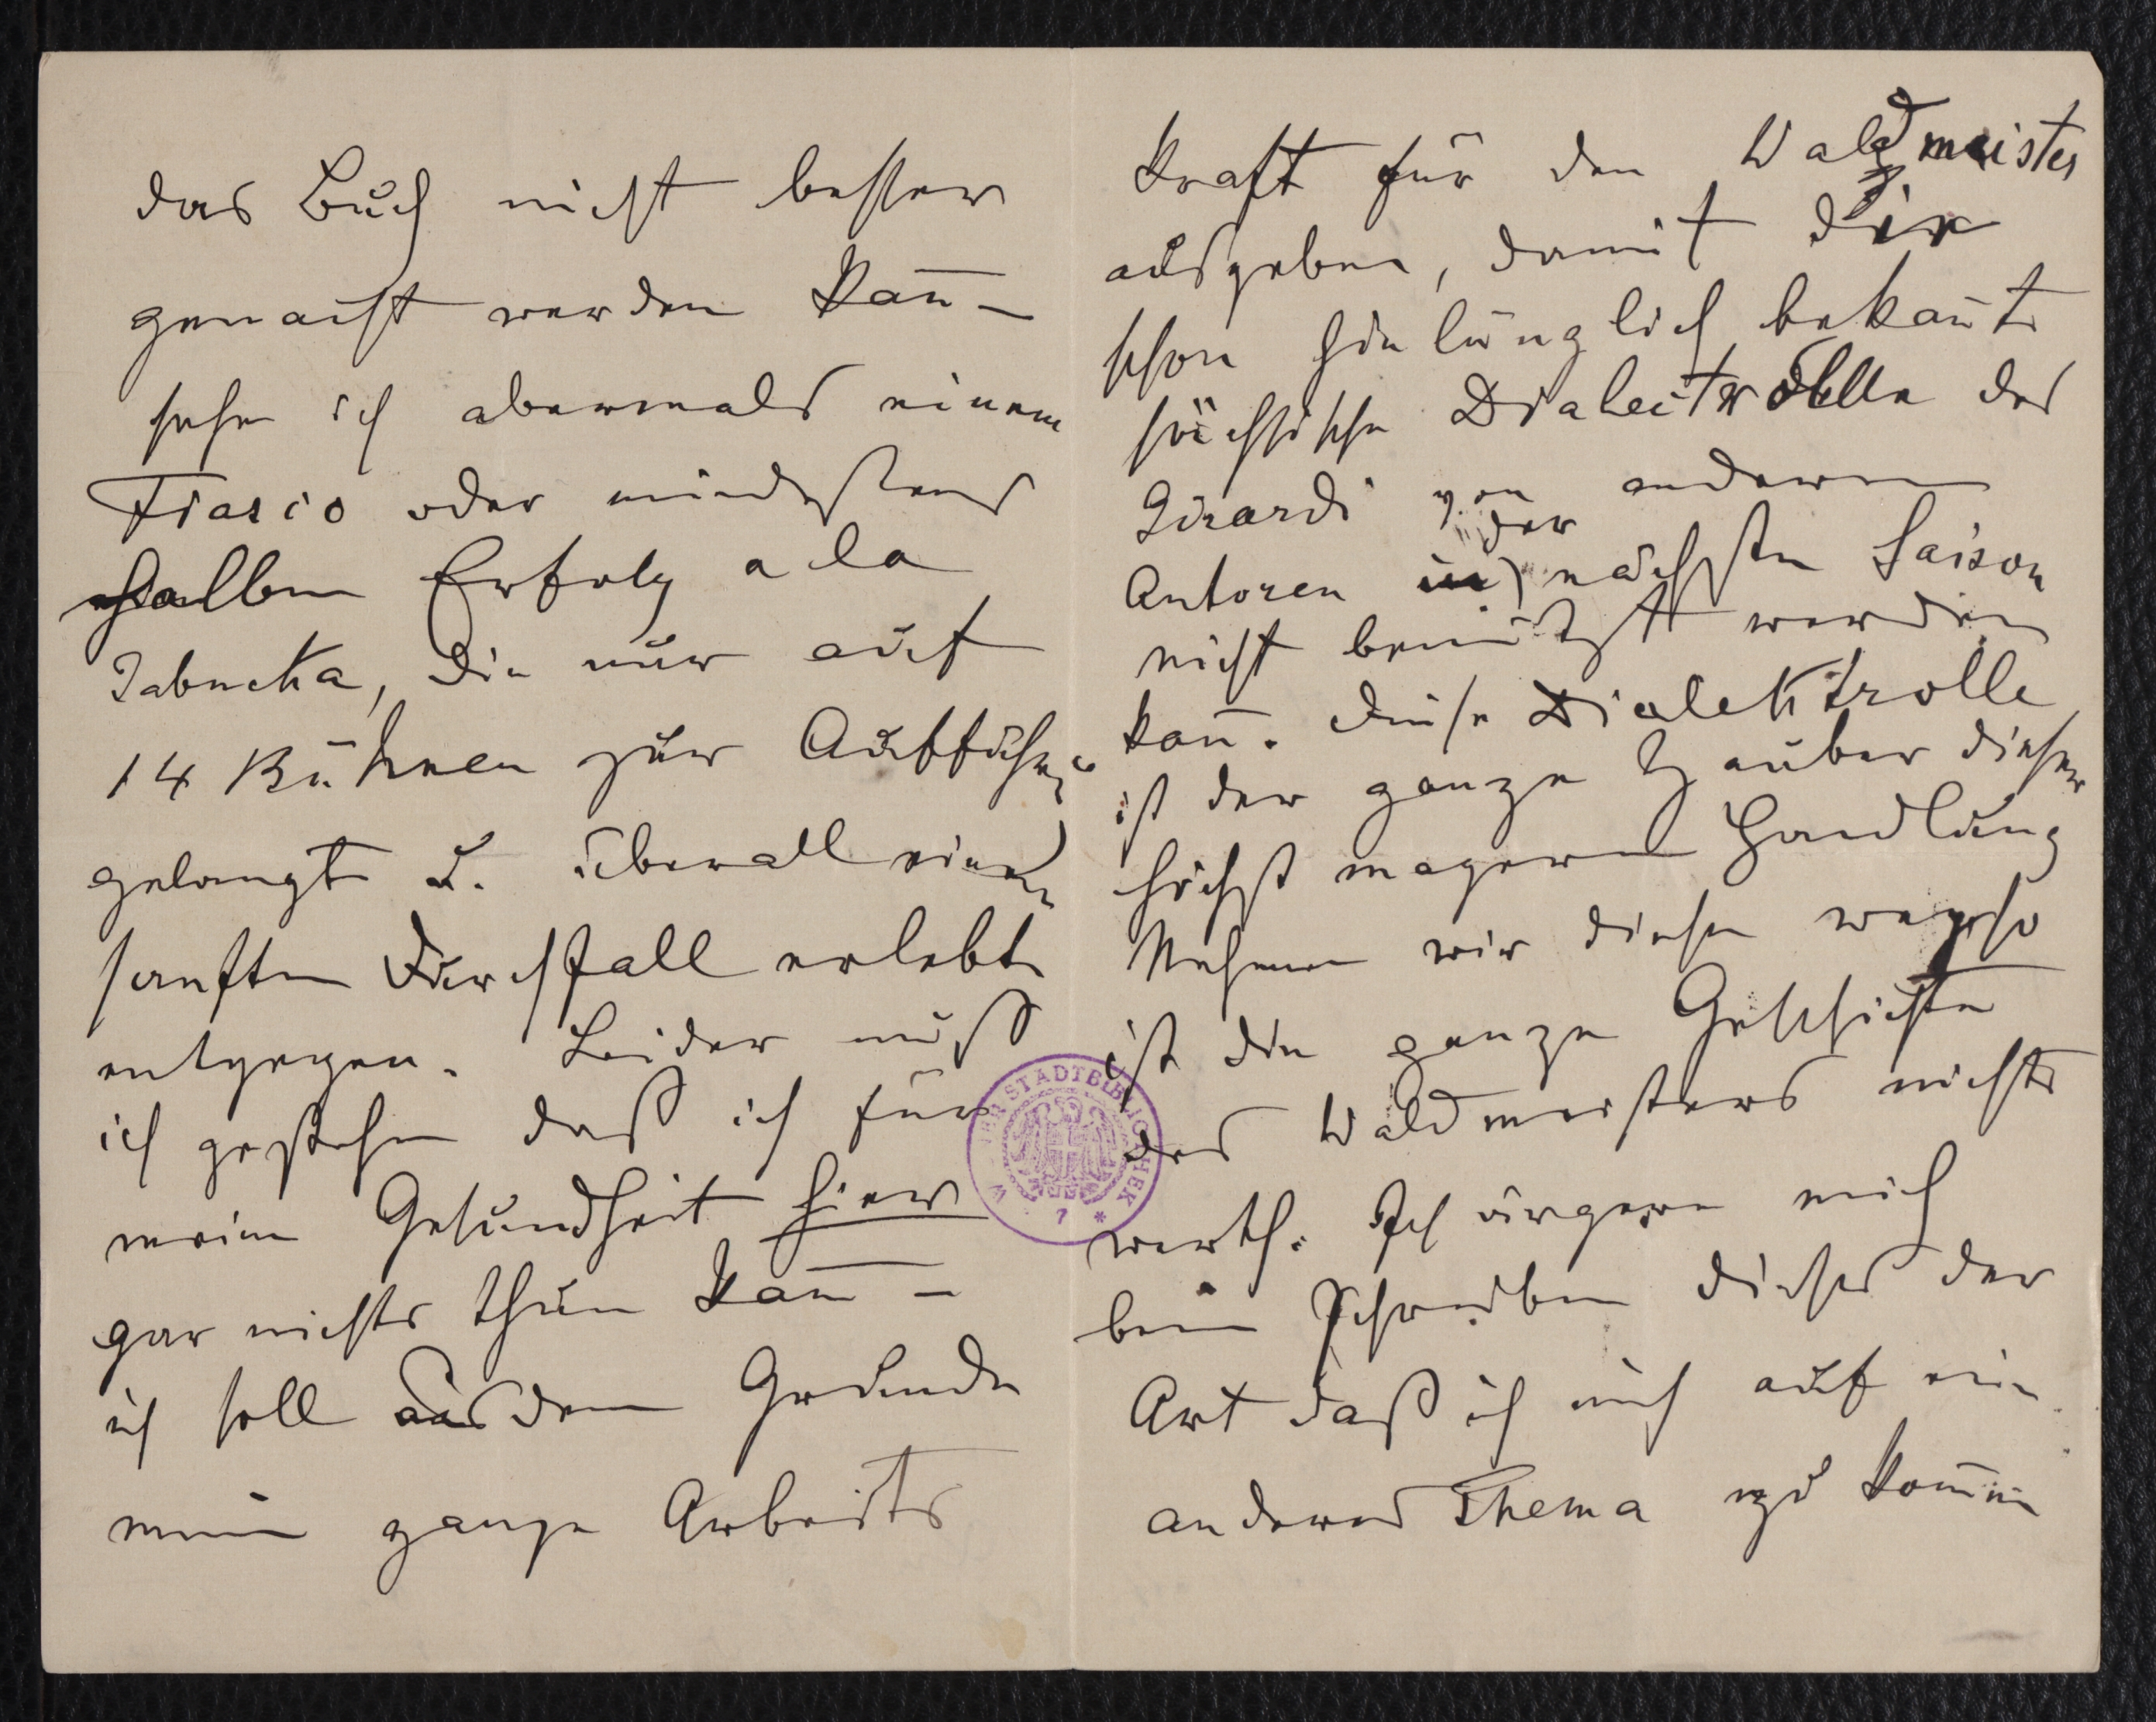 das Buch nicht besser
gemacht werden kan̄ –
sehe ich abermals einem
Fiasco oder mindestens
halben Erfolg a la
Jabucka, die nur auf
14 Bühnen zur Aufführg
gelangte u. überall einen
sanften Durchfall erlebte
entgegen. Leider muß
ich gestehen daß ich für
meine Gesundheit hier
gar nichts thun kan̄ –
ich soll aus dem Grunde
meine ganze Arbeits
Kraft für den Waldmeister
ausgeben, damit die
schon hinlänglich bekan̄te
sächsische Dialectrolle des
Girardi von anderen
Autoren in der nächsten Saison
nicht benützt werden
kan̄. Diese Dialektrolle
ist der ganze Zauber dieser
höchst mageren Handlung
Nehmen wir diese weg so
ist die ganze Geschichte
des Waldmeisters nichts
werth. Ich ärgere mich
beim Schreiben dieses der
Art daß ich um auf ein
anderes Thema zu kom̄en
STADTBIBLIOTHEK